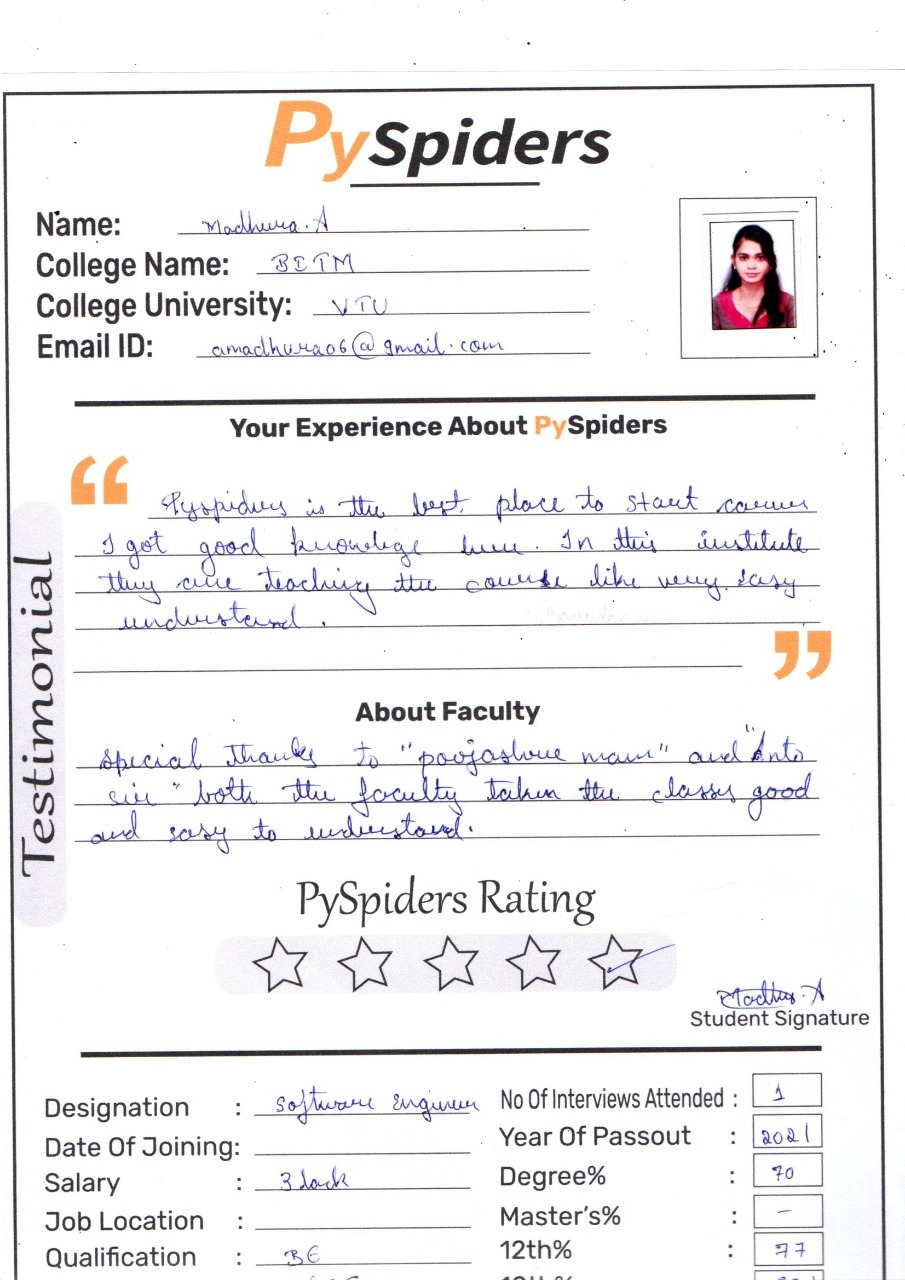 PySpiders
Name: Madhura.A
College Name: BITM
College University: VTU
Email ID: amadhura06@gmail.com
Your Experience About PySpiders
“
Pyspiders is the best place to start career
I got good knowlege here. In this institute
they are teaching the course like very easy
understand.
”
Testimonial
About Faculty
special thanks to "poojashree mam" and "Anto
sir" both the faculty taken the classes good
and easy to understand.
PySpiders Rating
Student Signature
Designation : Software Engineer
Date Of Joining:
Salary : 3 lack
Job Location :
Qualification : BE
No Of Interviews Attended : 1
Year Of Passout : 2021
Degree% : 70
Master's% : –
12th% : 77